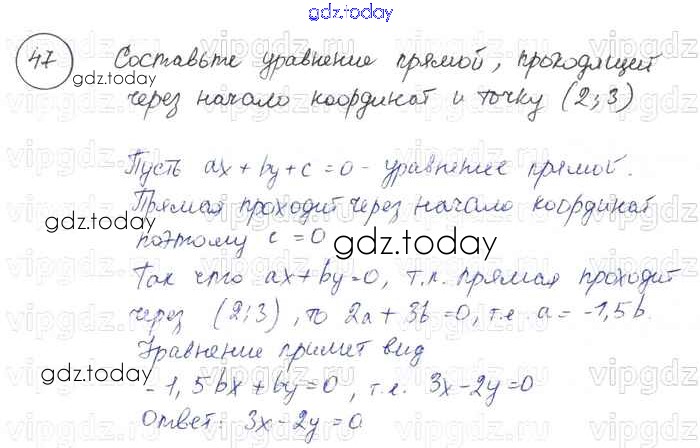 gdz.today
47 Составьте уравнение прямой, проходящей
gdz.today
через начало координат и точку (2;3)
Пусть ax + by + c = 0 - уравнение прямой.
Прямая проходит через начало координат
gdz.today
поэтому c = 0
gdz.today
Так что ax + by = 0, т.к. прямая проходит
через (2;3), то 2a + 3b = 0, т.е. a = -1,5b.
Уравнение примет вид
gdz.today
-1,5bx + by = 0, т.е. 3x - 2y = 0
Ответ: 3x - 2y = 0
gdz.today